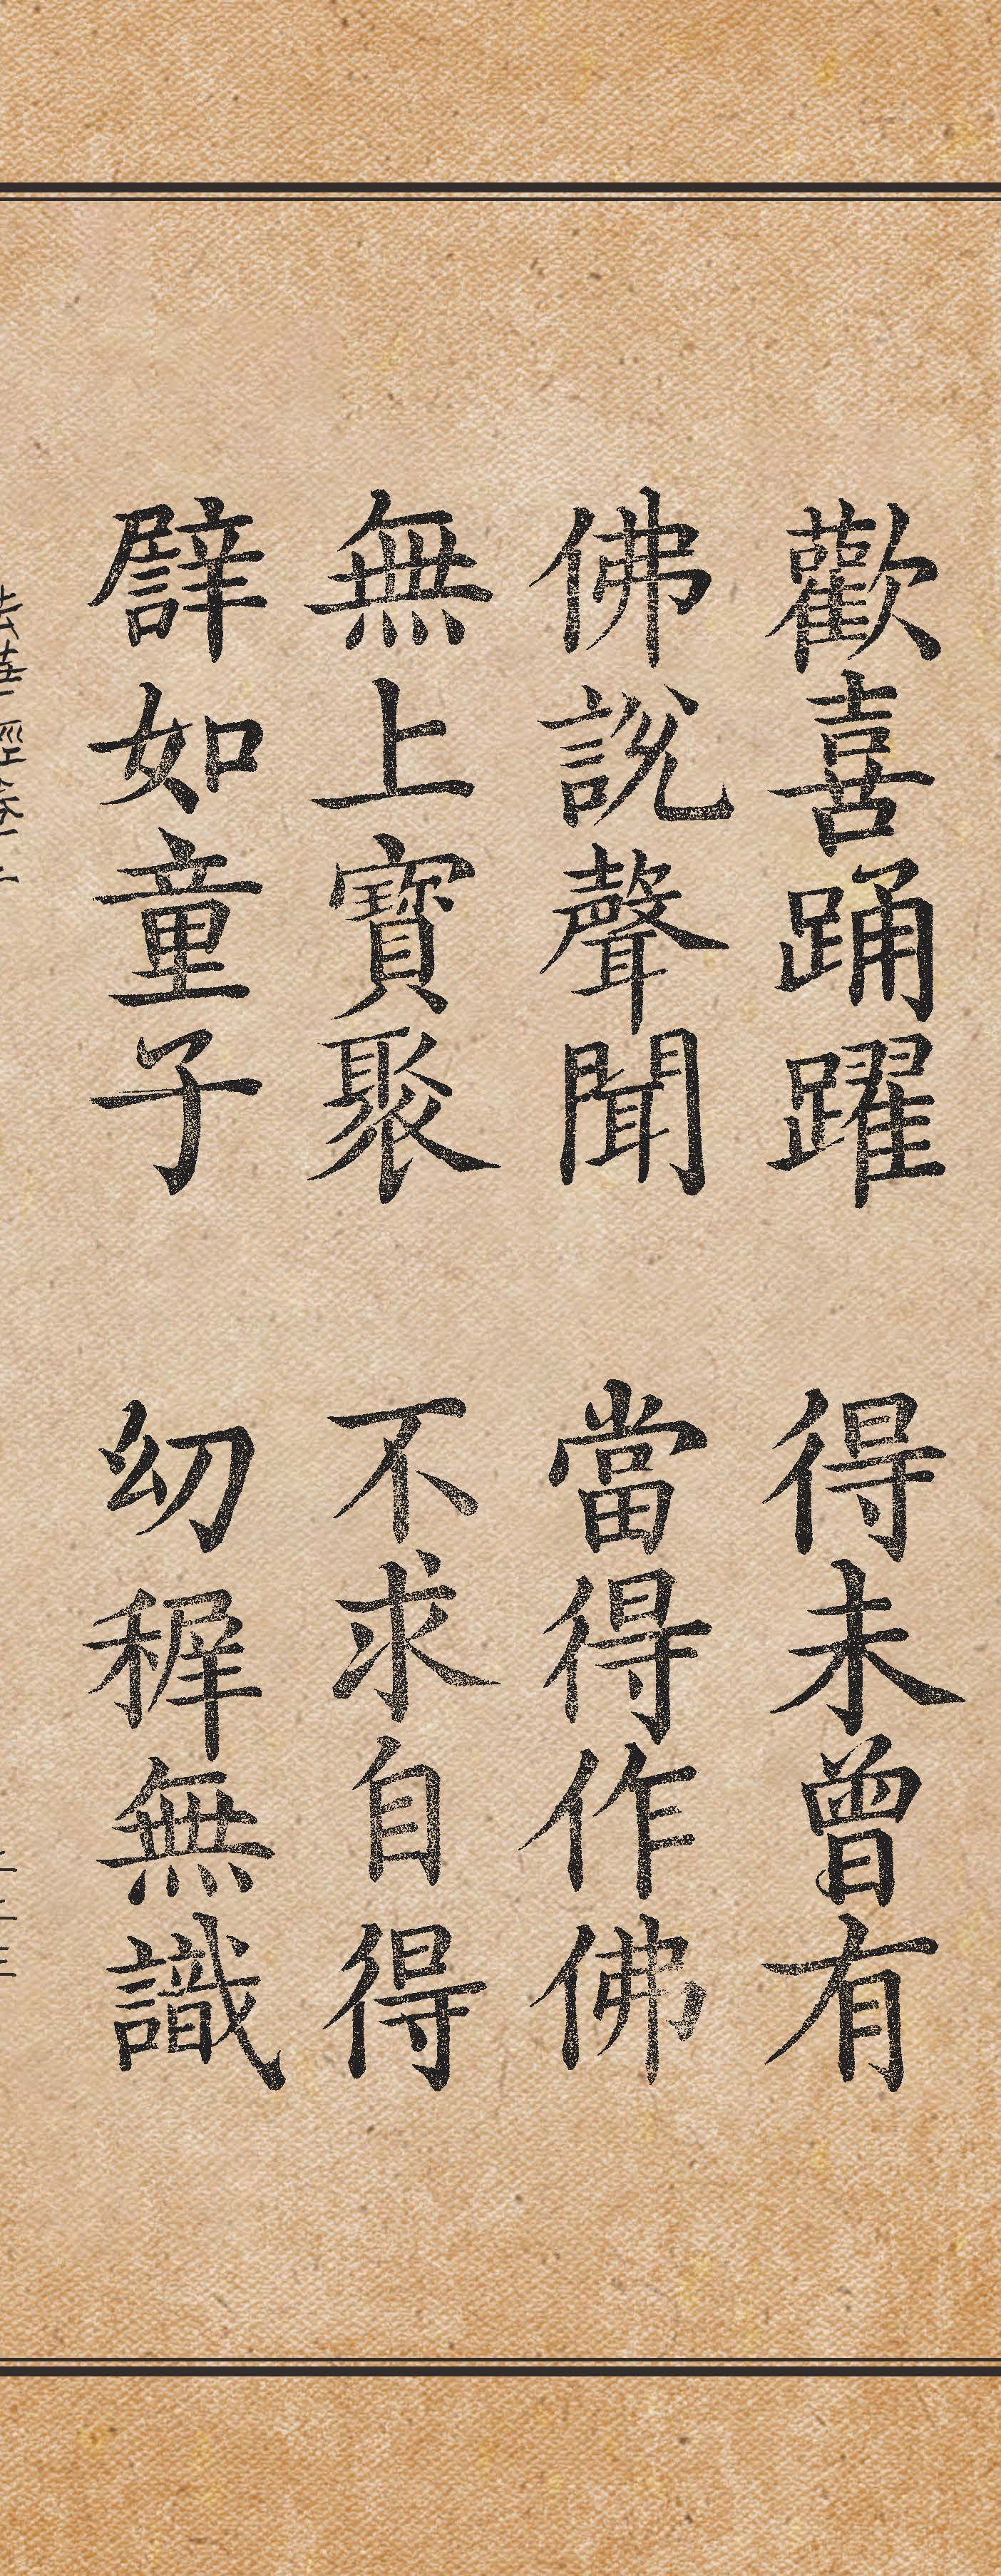 歡喜踊躍　得未曾有
佛說聲聞　當得作佛
無上寶聚　不求自得
譬如童子　幼稺無識